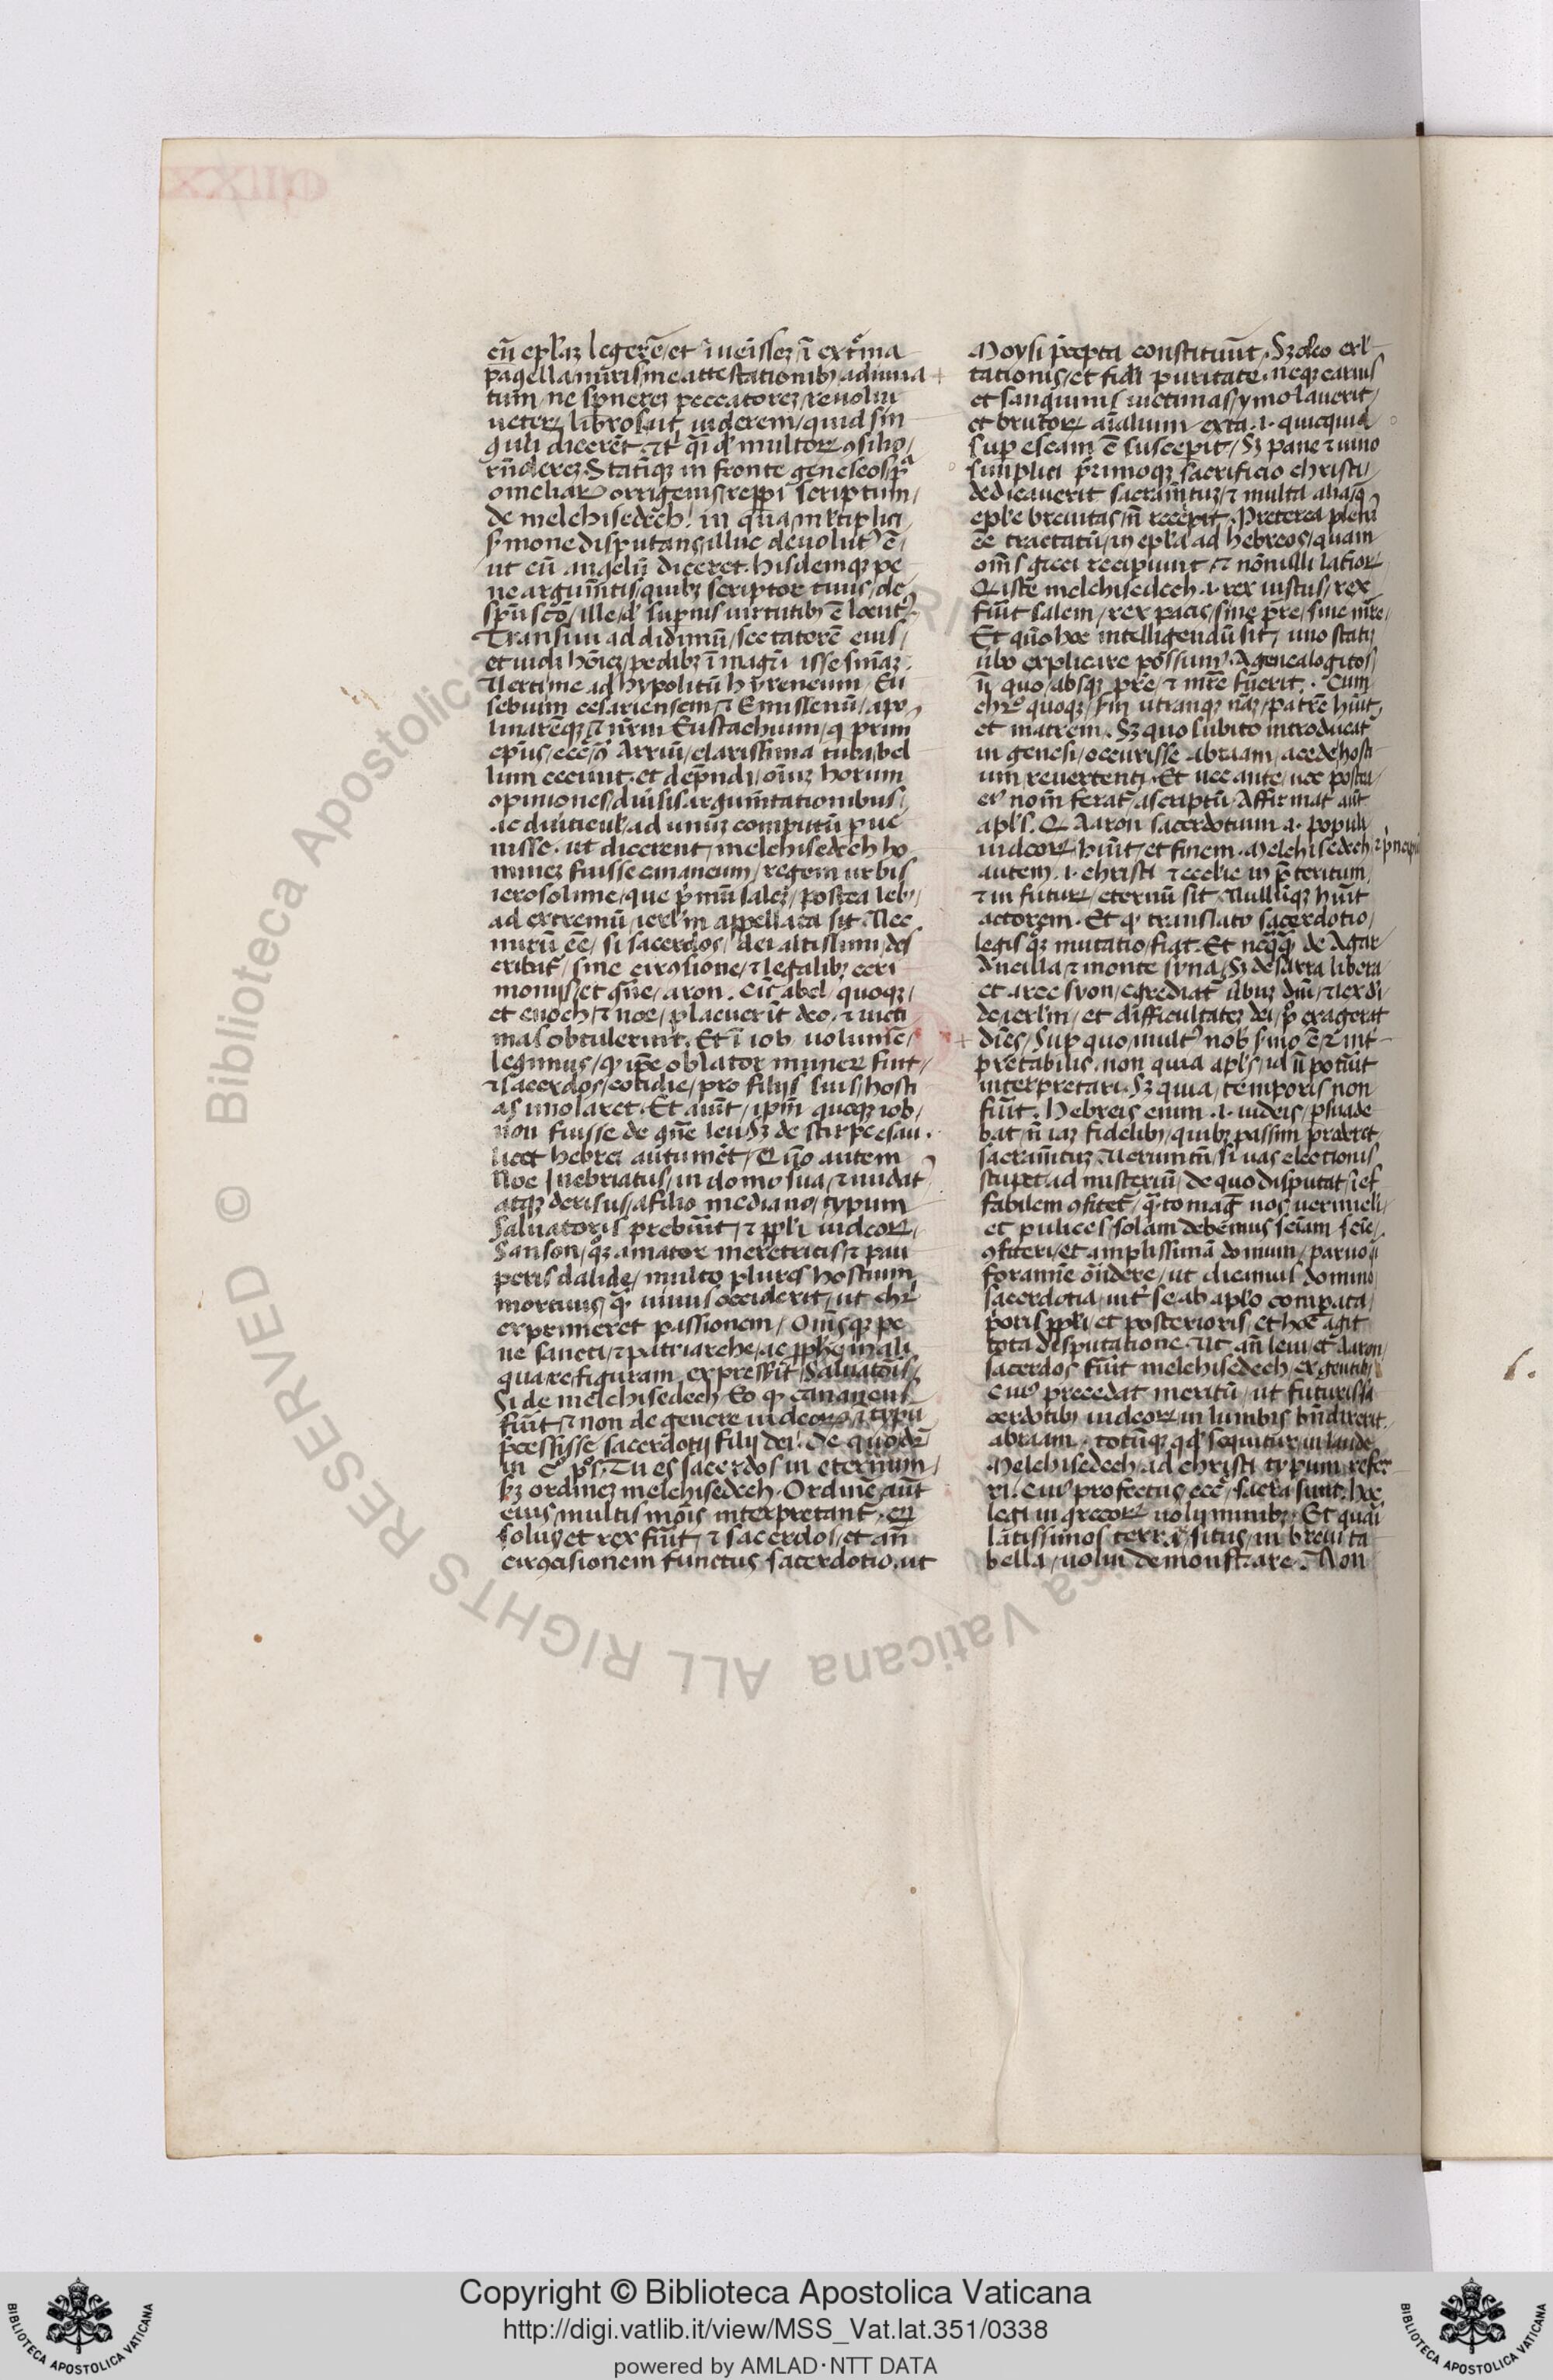 cū epl̄aȝ legerē/et īueīssez/ī extͥma
pagella/mīris/me attestationibȝ/adiura
tum/ne spnerez peccatorez/reuolui
ueterꝝ libros/ut uiderem/quid sin
guli dicerēt
omeliaꝝ orrigenis/reppi scriptum/
de melchisedech/ in qua/mltiplici
smone disputans/illuc deuolutꝰ ē/
ut cū angelū diceret. hisdemqȝ pe
ne argumtis/quibȝ scriptor tuus/de
spū scō/ille/d̄ supnis uirtutibȝ ē locutꝰ.
Transiui ad didimū/sectatorē eius/
et uidi hōiez/pedibȝ ī magrī isse smāȝ.
Uerti me ad hypolitū hyreneum Eu
sebium cesariensem/⁊ Emissenū/apo
linarēqȝ/⁊ nr̄m Eustachium/q prim
ep̄us/
lum cecinit. et horum
opiniones/duisis argum̄tationibus/
ac diuticul/ad unūȝ computū pue
nisse. ut dicerent/melchisedech ho
minez fuisse cananeum/regem urbis
ierosolime/que pmū salez/postea iebȝ/
ad extremū/ierl̄m appellata sit. Nec
mirū eē/ si sacerdos/ dei altissimi/des
cribatꝰ/ sine circꝯsione/⁊ legalibȝ ceri
moniis/et gn̄e/aron. Cū abel/quoqȝ/
et enoch/⁊ noe/placuerīt deo/⁊ uicti
mas obtulerint. Et ī iob uolumē/
legimus/ꝙ ip̄e oblator muneꝝ fuit/
⁊ sacerdos/cotidie/pro filijs suis/hosti
as imolaret. Et aiūt/ipm̄ quoqȝ iob/
non fuisse de gn̄e leui/sȝ de stirpe esau.
licet hebrei autumēt/ Quō autem
Noe Inebriatus/in domo sua/⁊ nudatꝰ
atqȝ derisus/a filio mediano/typum
saluatoris prebuit/⁊ ppl̄i iudeoꝝ/
Sanson/qȝ amator meretricis/⁊ pau
peris dalide/multo plures hostium
mortuus/ꝙ̄ uiuus occiderit/ut chr̄i
exprimeret passionem/ Omēsqȝ pe
ne sancti/⁊ patriarche/ac ꝓphe
quare figuram expresserīt/Saluatoris/
Si de melchisedech/Eo ꝙ cananeus
fuit/⁊ non de genere iudeoꝝ/ typū
pcessisse sacerdotij filij dei. de quo dr̄
in Tu es sacerdos in eternum/
ordinez melchisedech. Ordinē aūt
eius/multis mois interpretantꝰ.
solus/et rex fuit/⁊ sacerdos/et an̄
circꝯcisionem functus sacerdotio. ut
Moysi pcepta constituūt. Sȝ oleo exl̄
tationis/et fidei puritate. neqȝ carnis
et sanguinis uictimas/ymolauerit/
et brutoꝝ aīalium/exta .i. quicquid
sup escam ē susceperit/ Sȝ pane ⁊ uino
simplici pimoqȝ sacrificio christi/
dedicauerit sacram̄tuȝ/⁊ multa alia/
epl̄e breuitas/n̄ recepit. Preterea pleni
eē tractatū/in epl̄a ad hebreos/quam
om̄s greci recipiunt/⁊ nōnulli latioꝝ
Q iste melchisedech .i. rex iustus/rex
fuit salem/rex pacis/sine pr̄e/sine mr̄e/
Et quō hoc intelligendū sit/ uno stati
ubo explicare possum. Agenealogitos/
quo/absqȝ pr̄e/⁊ mr̄e fuerit. Cum
chrs̄ quoqȝ/ scd̄m utranqȝ nāȝ/patrē hūit
et matrem. Sȝ quo subito introducatꝰ
in genesi/occurisse abraam/a cede hosti
um reuertenti. Et nec ante/nec postea/
eiꝰ nom̄ feratꝰ ascriptū. Affirmat aūt
apl̄s. Q Aaron sacerdotium .i. populi
iudeoꝝ/ et finem. Melchisedech ⁊ pncipiū
autem .i. christi ⁊ eccl̄ie in pteritum
⁊ in futuꝝ/eternū sit. Nullūqȝ hūit
actorem. Et ꝙ translato sacerdotio/
legis qȝ mutatio/fiat. Et neqȝ̄ de Agar
ancilla ⁊ monte syna/Sȝ de sarra libera
et arce syon/egrediatꝰ ubuȝ dn̄i/⁊ lex di
de ierl̄m/et difficultatez pus exagerat
dicēs/Sup quo/multꝰ nob smo ē/⁊ int
pretabilis. non quia apl̄s/id n̄ potuit
interpretari. Sȝ quia/temporis non
fuit. Hebreis enim .i. iudeis/psuade
bat/n̄ iaȝ fidelibȝ/quibȝ passim proderet
sacram̄tuȝ. Ueruntn̄/si uas electionis
stupet ad misteriū/de quo disputat/ief
fabilem ꝯfitetꝰ/qͣto maḡ nos uermiculi/
et pulices/solam debemus sciam scīe/
ꝯfiteri/et amplissimā domum/paruo
foramīe oñdere/ut dicamus domino
sacerdotia/int se ab apl̄o comparata/
poris ppl̄i/et posterioris/et hoc agit
tota disputatione. ut an̄ leui/et Aaron/
sacerdos fuit melchisedech/ex gentibȝ
Cuiꝰ precedat meritū/ut futuris sa
cerdotibȝ iudeoꝝ in lumbis bn̄dixerit.
abraam. totūqȝ qd̄ sequitur/in laude
Melchisedech/ad christi typum/refer
ri. Cuiꝰ profectus/ecce/sacra sunt. hec
legi in grecoꝝ uoluminibȝ. Et quasi
latissimos terraꝝ situs/in breui ta
bella/uolui demonstrare. Non
Copyright © Biblioteca Apostolica Vaticana
http://digi.vatlib.it/view/MSS_Vat.lat.351/0338
powered by AMLAD·NTT DATA
BIBLIOTECA APOSTOLICA VATICANA
BIBLIOTECA APOSTOLICA VATICANA
© Biblioteca Apostolica Vaticana ALL RIGHTS RESERVED